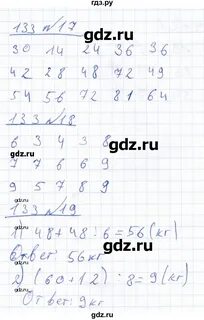 гдз.ру
133 №17
30 14 24 36 36
42 28 48 72 49
54 56 72 81 64
133 №18
6 3 4 3 8
7 7 6 6 9
9 5 7 8 9
133 №19
1) 48 + 48 : 6 = 56 (кг)
Ответ 56 кг
2) (60 + 12) : 8 = 9 (кг)
Ответ: 9 кг